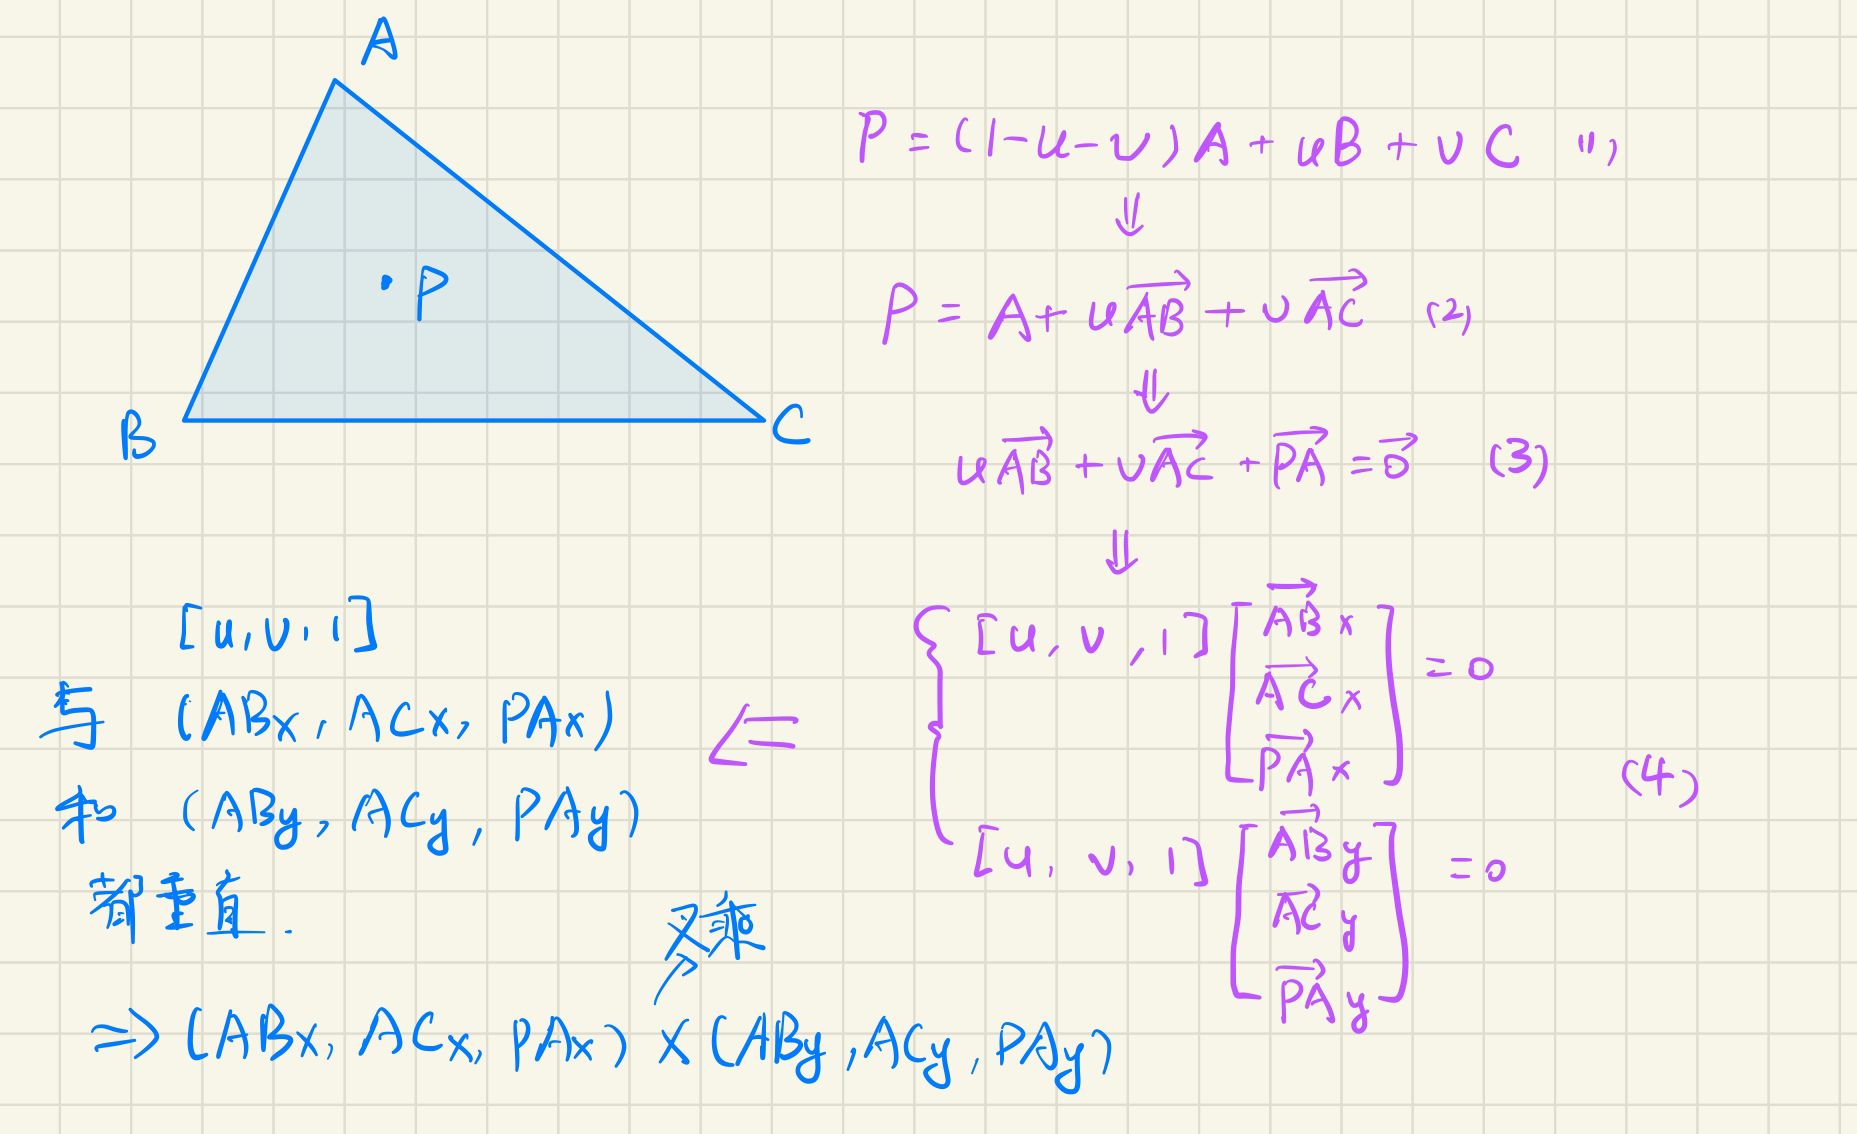 A
B
C
·P
P = (1-u-v)A + uB + vC (1)
⇓
P = A + u\overrightarrow{AB} + v\overrightarrow{AC} (2)
⇓
u\overrightarrow{AB} + v\overrightarrow{AC} + \overrightarrow{PA} = \overrightarrow{0} (3)
⇓
[u, v, 1] [\overrightarrow{AB}x
\overrightarrow{AC}x
\overrightarrow{PA}x] = 0
(4)
[u, v, 1] [\overrightarrow{AB}y
\overrightarrow{AC}y
\overrightarrow{PA}y] = 0
⇐
[u, v, 1]
与 (ABx, ACx, PAx)
和 (ABy, ACy, PAy)
都垂直.
叉乘
⇒ (ABx, ACx, PAx) × (ABy, ACy, PAy)